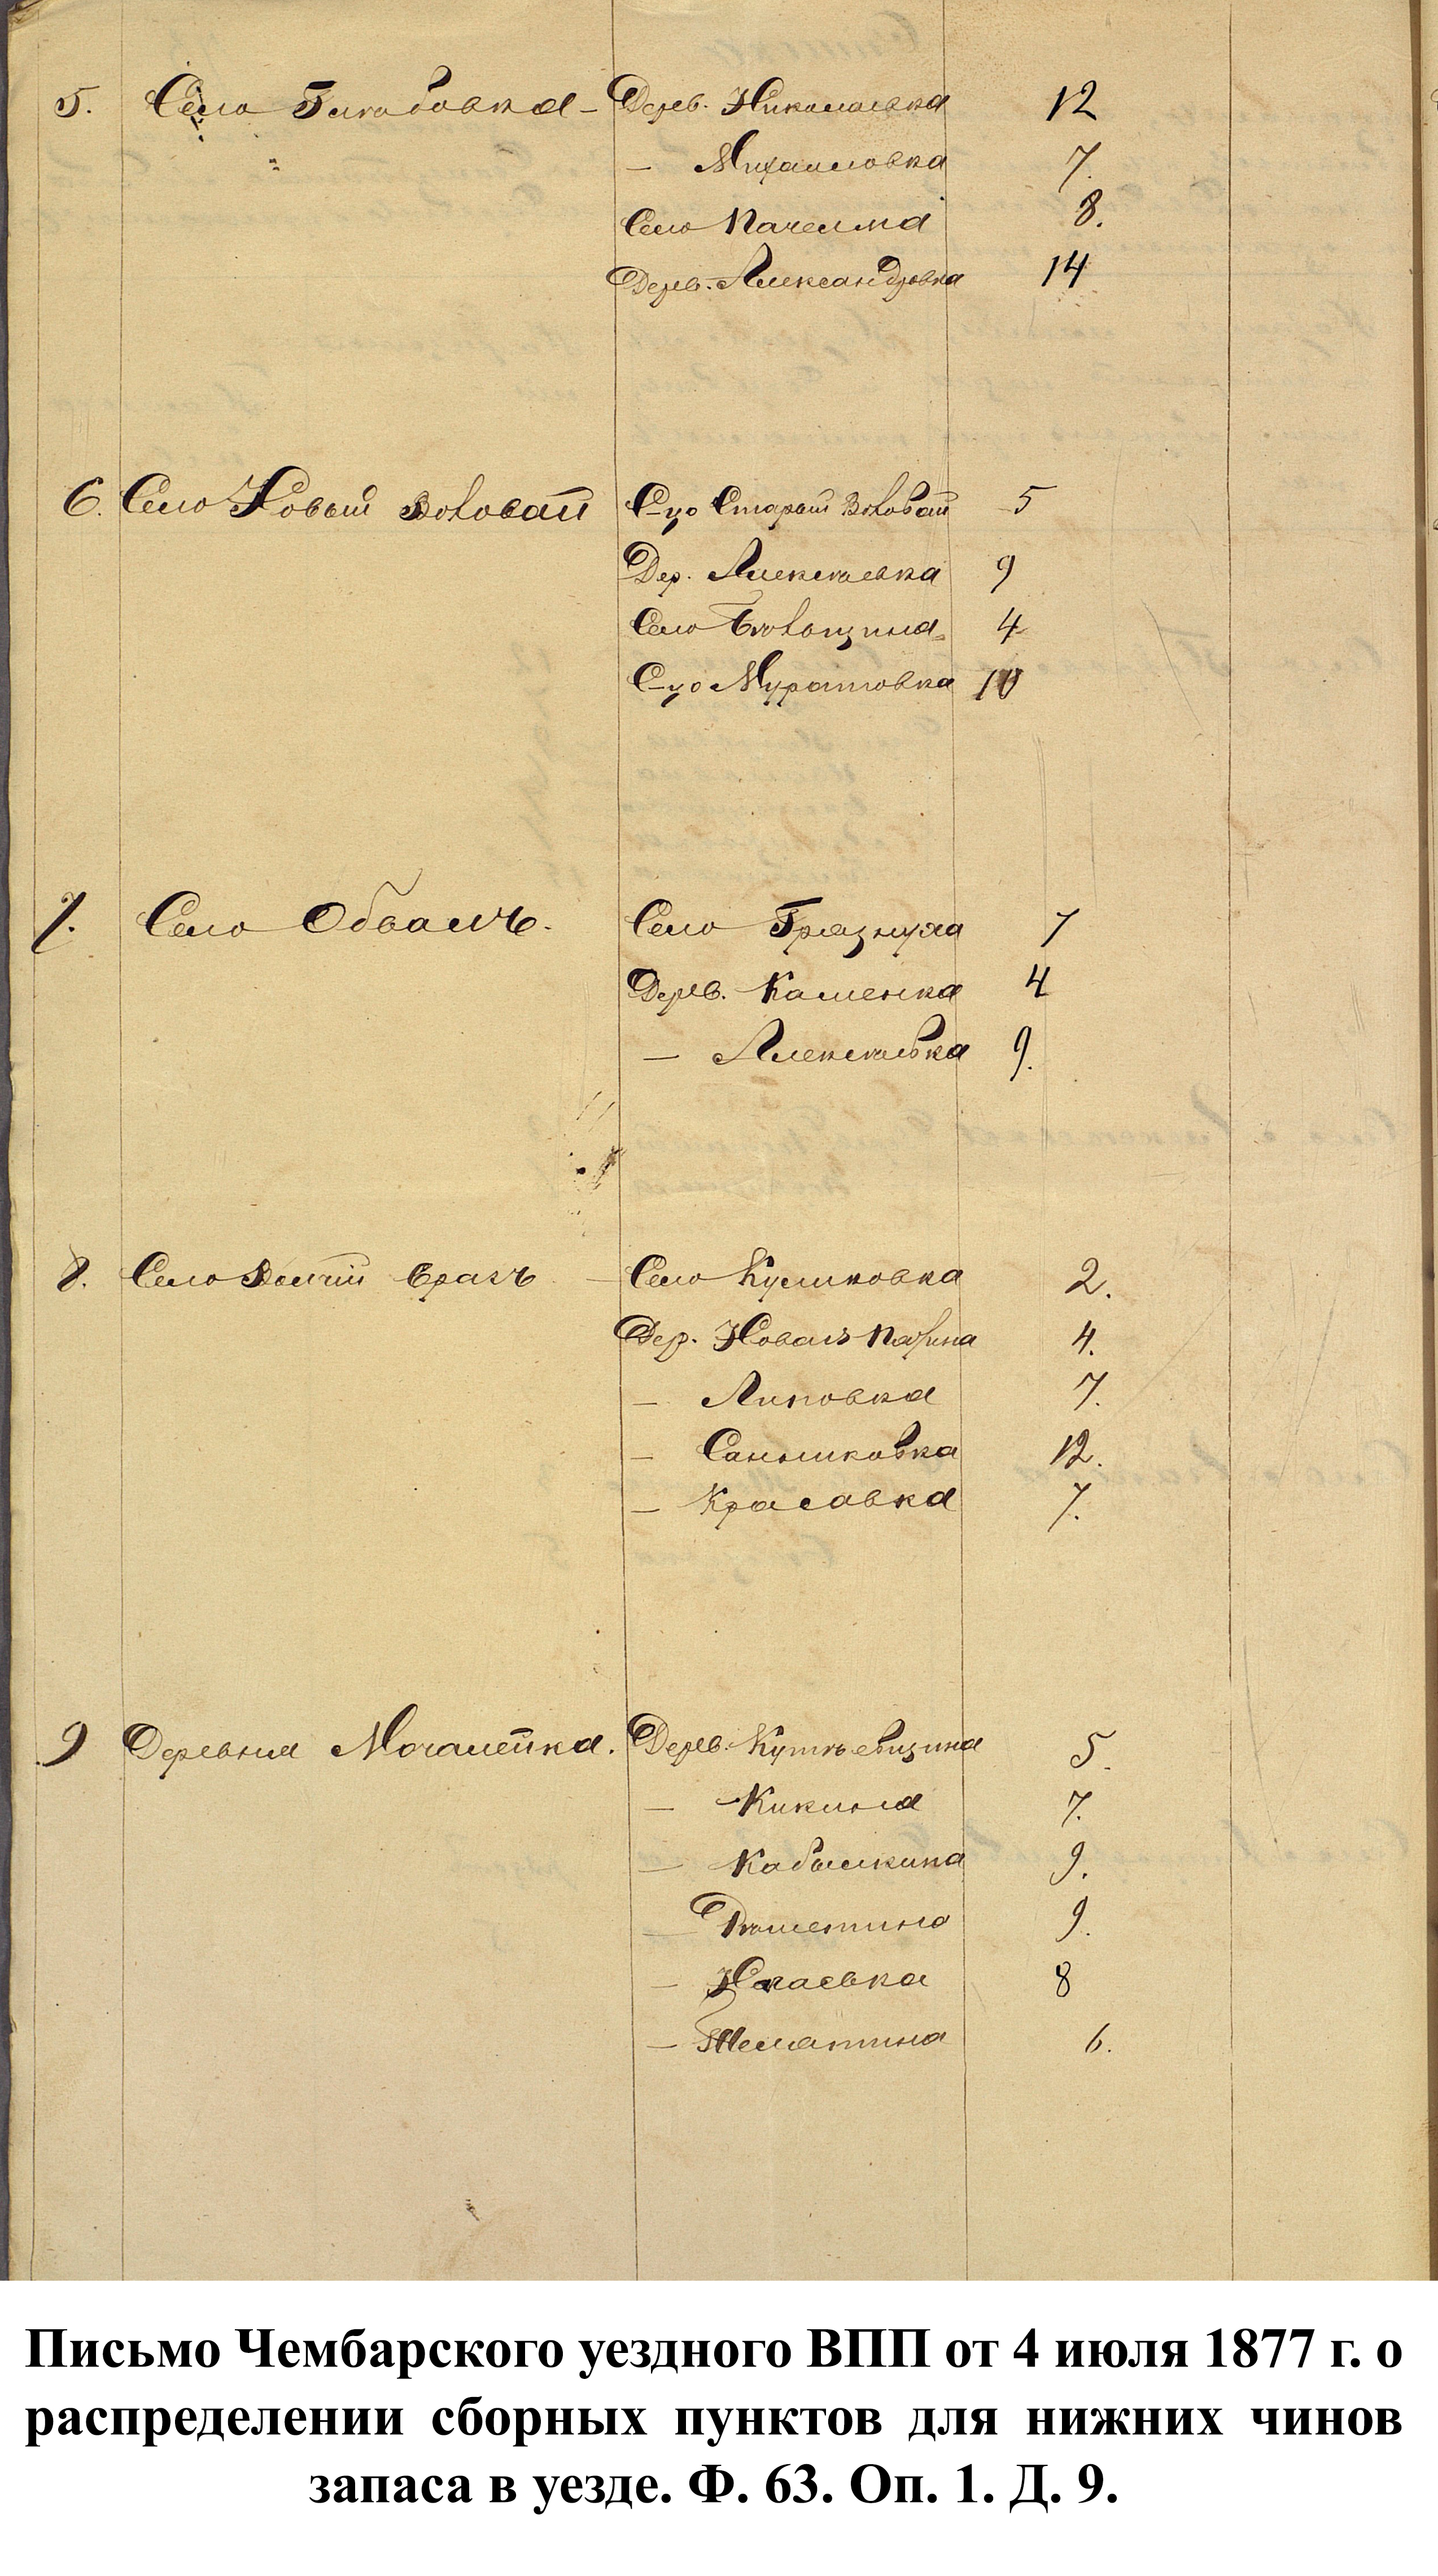 5. Село Глебовка – Дерев. Николаевка 12
– Михаиловка 7.
Село Пачелма 8.
Дерев. Александровка 14
6. Село Новый С-цо Старый 5
Дер. Алексѣевка 9
Село 4
С-цо Муратовка 10
7. Село Обвалъ. Село Грязнуха 7
Дерев. Каменка 4
– Алексѣевка 9.
8. Село Волчiй Врагъ – Село Куликовка 2.
Дер. Новая 4.
– Липовка 7.
– Саньшковка 12.
– Красавка 7.
9 Деревня Мочалейка. Дерев. 5.
– Кикина 7.
– Кабылкина 9.
– 9.
– 8
– Шелатина 6.
Письмо Чембарского уездного ВПП от 4 июля 1877 г. о
распределении сборных пунктов для нижних чинов
запаса в уезде. Ф. 63. Оп. 1. Д. 9.